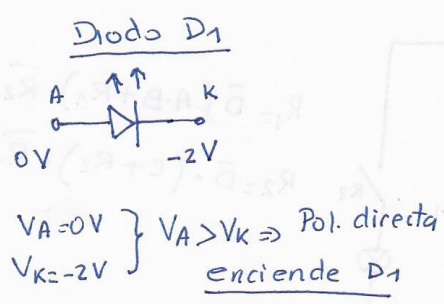 Diodo D1
A K
0V -2V
VA=0V } VA>VK => Pol. directa
VK=-2V enciende D1